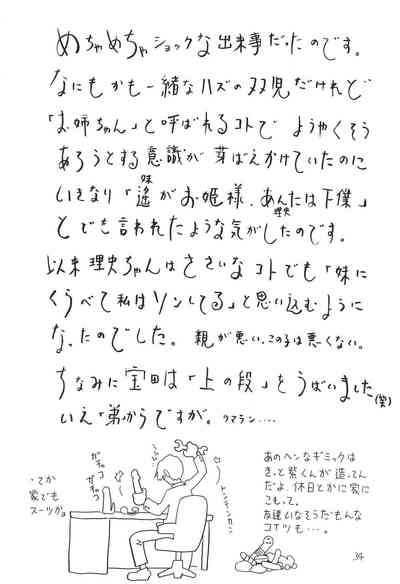 めちゃめちゃショックな出来事だったのです。
なにもかも一緒なハズの双児だけれど
「お姉ちゃん」と呼ばれるコトで ようやくそう
あろうとする意識が芽ばえかけていたのに
いきなり「遙が お姫様、あんたは下僕」
妹
理史
とでも言われたような気がしたのです。
以来 理史ちゃんは ささいなコトでも「妹に
くらべて私はソンしてる」と思い込むように
なったのでした。 親が悪い。この子は悪くない。
ちなみに宝田は「上の段」をうばいました(笑)
いえ「弟」からですが。 スマン‥‥
ってか
家でも
スーツかよ
ガチャコ
ガチャコ
トンテンカン
あのヘンなギミックは
きっと紫くんが造ってん
だよ。休日とかに家に
こもって。
友達いなそうだもんな
コイツも…。
34